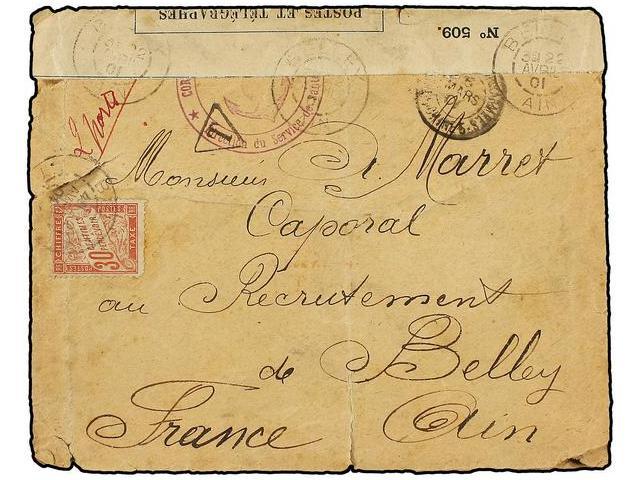 POSTES ET TÉLÉGRAPHES
Nº 509.
BELLEY
22
AVRIL
01
AIN
MARS
Direction du Service de Santé
T
Monsieur A. Marret
Caporal
au Recrutement
de Belley
France Ain
CHIFFRE
POSTES
TAXE
30
CENTIMES
À PERCEVOIR